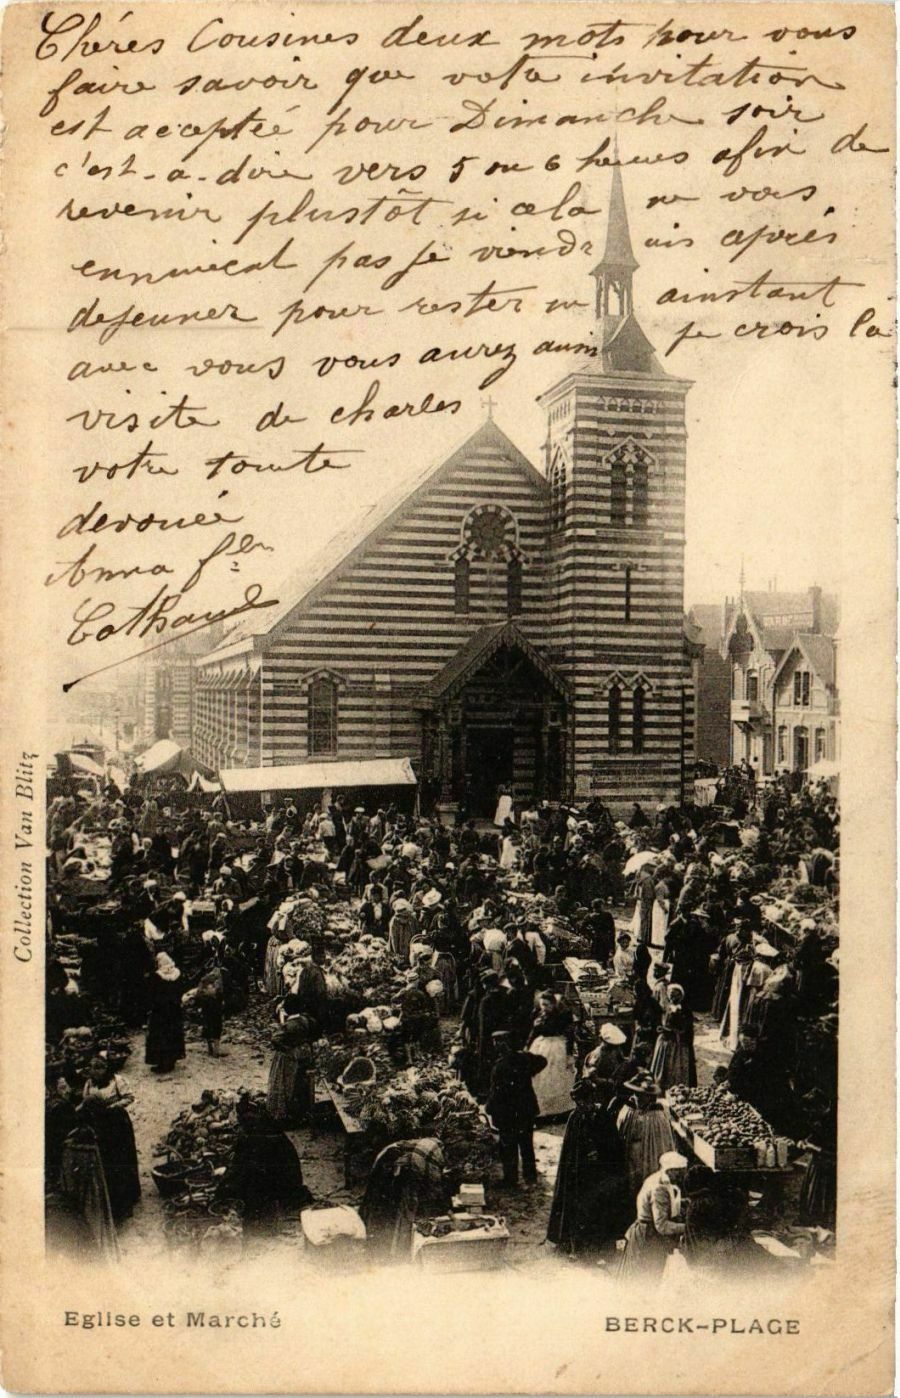 Chéres Cousines deux mots pour vous
faire savoir que votre invitation
est acceptée pour Dimanche soir
c'est-a-dire vers 5 ou 6 heures afin de
revenir plustôt si cela ne vous
ennuierat pas je viendrais aprés
dejeuner pour rester un ainstant
avec vous vous aurez aussi je crois la
visite de charles
votre toute
devouée
Anna
Eglise et Marché
BERCK-PLAGE
Collection Van Blitz